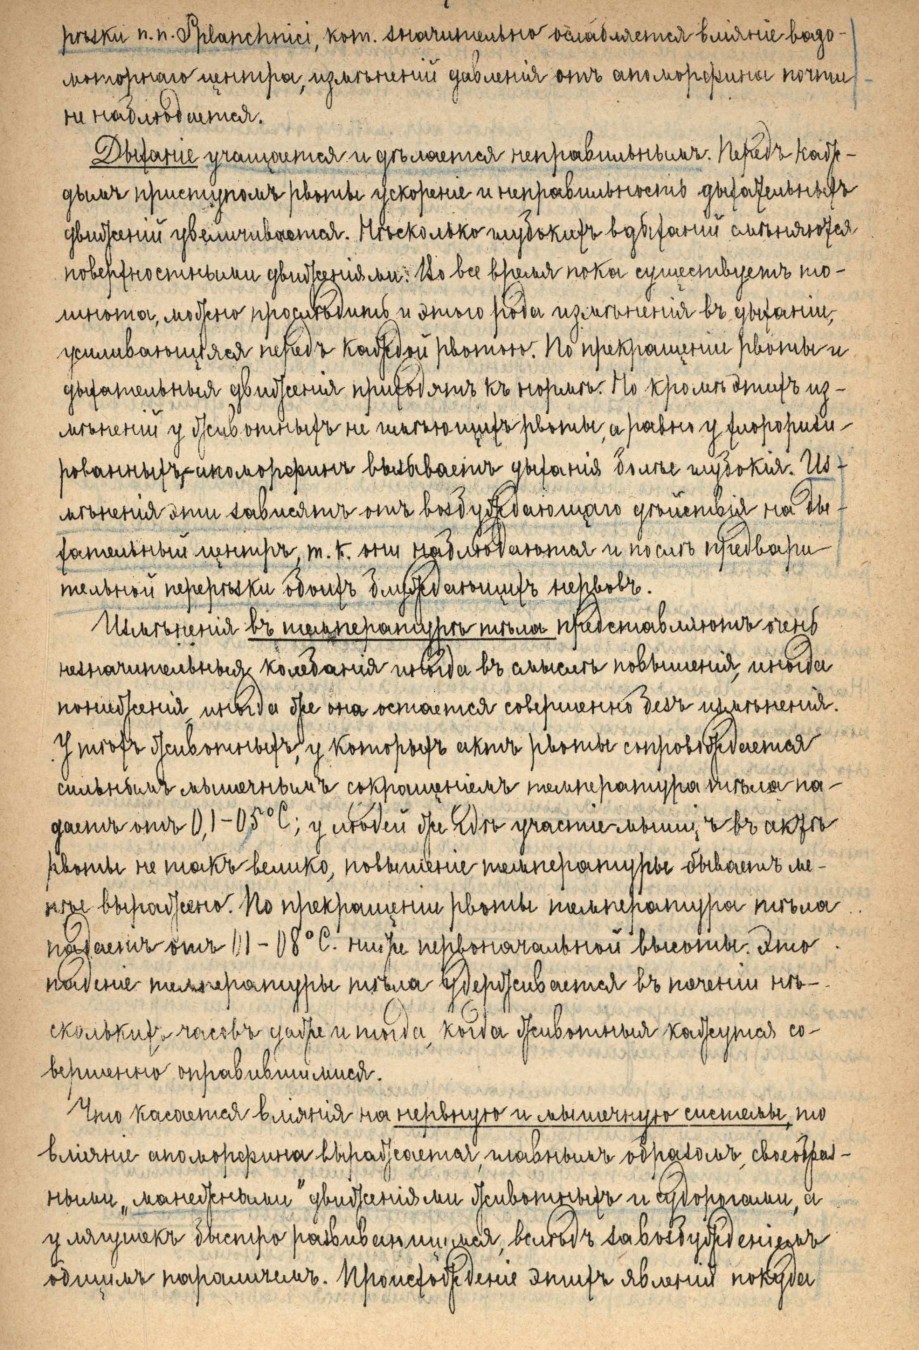 рѣзки n.n. Splanchnici, кот. значительно ослабляется вліяніе вазо-
моторнаго центра, измѣненій давленія отъ апоморфина почти
не наблюдается.
Дыханіе учащается и дѣлается неправильнымъ. Передъ каж-
дымъ приступомъ рвоты ускореніе и неправильность дыхательныхъ
движеній увеличивается. Нѣсколько глубокихъ вдыханій смѣняются
поверхностными движеніями. Во все время пока существуетъ то-
шнота, можно прослѣдить и этого рода измѣненія въ дыханіи,
усиливающіяся передъ каждой рвотою. По прекращеніи рвоты и
дыхательныя движенія приходятъ къ нормѣ. Но кромѣ этихъ из-
мѣненій у животныхъ не имѣющихъ рвоты, а равно у хлорофи-
рованныхъ, апоморфинъ вызываетъ дыханія болѣе глубокія. Из-
мѣненія эти зависятъ отъ возбуждающаго дѣйствія на ды-
хательный центръ, т.к. они наблюдаются и послѣ предвари-
тельной перерѣзки обоихъ блуждающихъ нервовъ.
Измѣненія въ температурѣ тѣла представляютъ очень
незначительныя колебанія иногда въ смыслѣ повышенія, иногда
пониженія, иногда же она остается совершенно безъ измѣненія.
У тѣхъ животныхъ, у которыхъ актъ рвоты сопровождается
сильнымъ мышечнымъ сокращеніемъ температура тѣла па-
даетъ отъ 0,1-0,5°C; у людей же гдѣ участіе мышцъ въ актѣ
рвоты не такъ велико, повышеніе температуры бываетъ ме-
нѣе выражено. По прекращеніи рвоты температура тѣла
падаетъ отъ 01-08°C. ниже первоначальной высоты. Это
паденіе температуры тѣла удерживается въ теченіи нѣ-
сколькихъ часовъ даже и тогда, когда животныя кажутся со-
вершенно оправившимися.
Что касается вліянія на нервную и мышечную системы, то
вліяніе апоморфина выражается, главнымъ образомъ, своеобраз-
ными „манежными" движеніями животныхъ и судорогами, а
у лягушекъ быстро развивающимся, вслѣдъ за возбужденіемъ
общимъ параличемъ. Происхожденіе этихъ явленій покуда